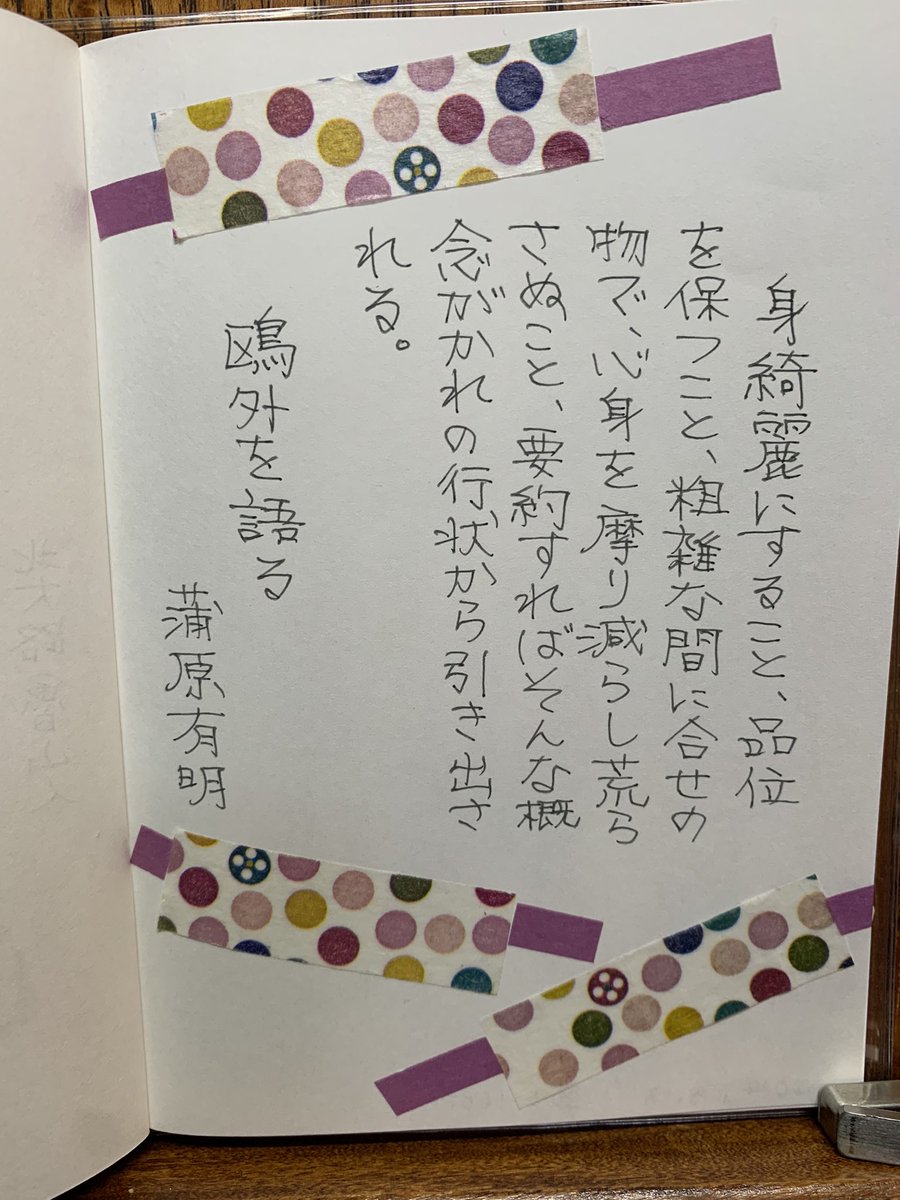 身綺麗にすること、品位
を保つこと、粗雑な間に合せの
物で、心身を摩り減らし荒ら
さぬこと、要約すればそんな概
念がかれの行状から引き出さ
れる。
鴎外を語る
蒲原有明